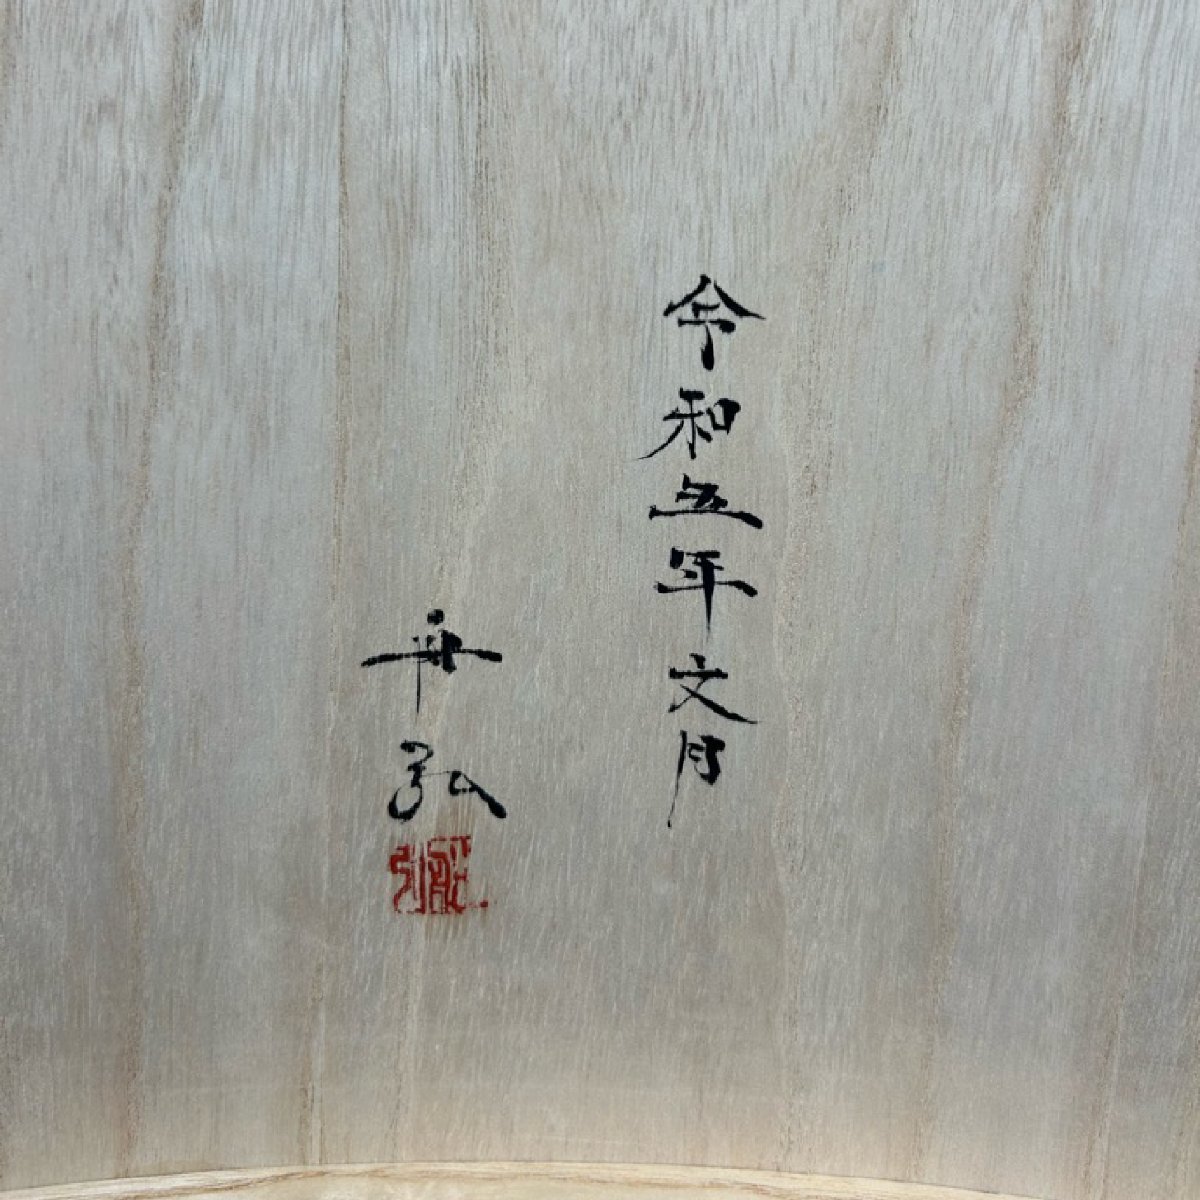 令和五年文月
舟弘